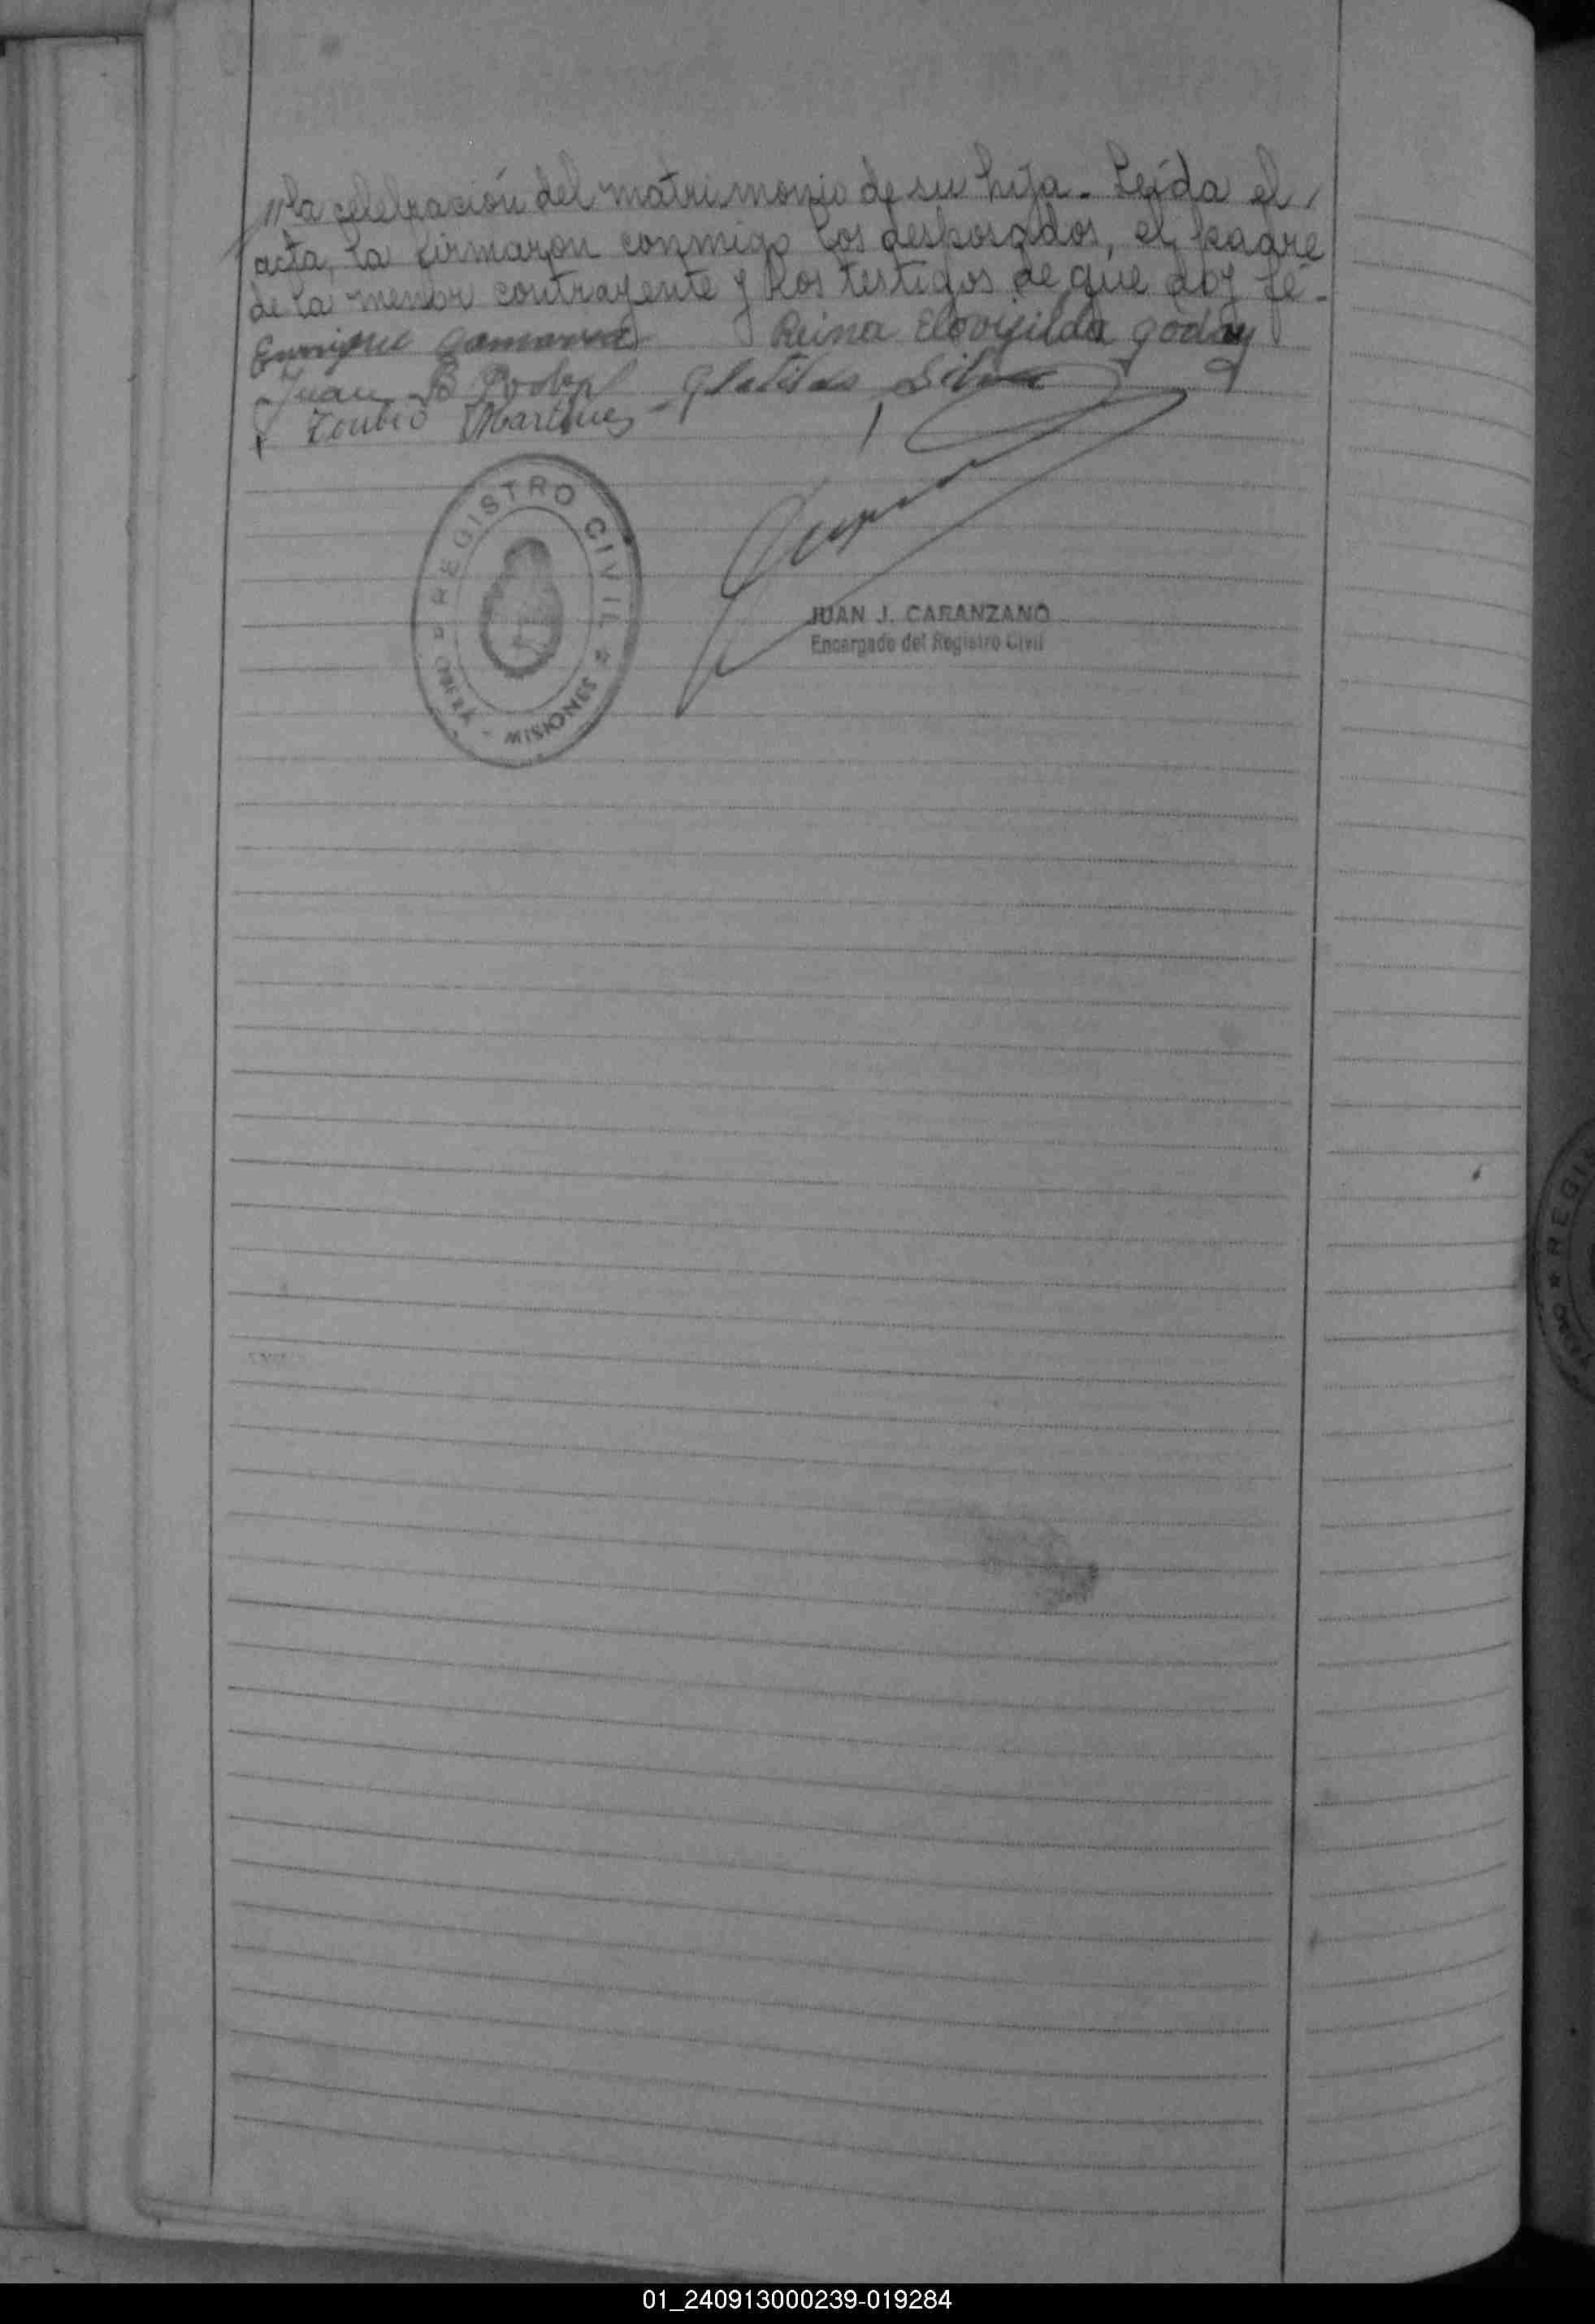 //la celebración del matrimonio de su hija.- Leída el
acta, la firmaron conmigo los desposados, el padre
de la menor contrayente y los testigos de que doy fé.-
Enrique Gamarra Reina Elovijilda Godoy
Juan B Silva
Toribio Martines
REGISTRO CIVIL
OBERÁ - MISIONES
JUAN J. CARANZANO
Encargado del Registro Civil
REGI
01_240913000239-019284